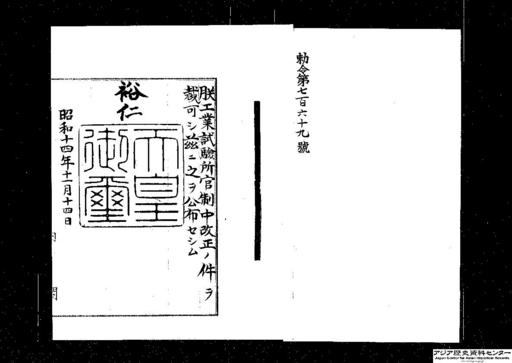 勅令第七百六十九號
朕工業試驗所官制中改正ノ件ヲ
裁可シ茲ニ之ヲ公布セシム
裕仁
天皇
御璽
昭和十四年十一月十四日
閣
アジア歴史資料センター
Japan Center for Asian Historical Records